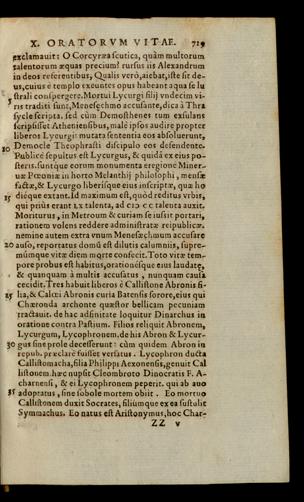 X. ORATORVM VITAE. 719
exclamauit: O Corcyræa scutica, quàm multorum
talentorum æquas precium? rursus iis Alexandrum
in deos referentibus, Qualis verò, aiebat, iste sit de-
us, cuius è templo exeuntes opus habeant aqua se lu
5 strali conspergere. Mortui Lycurgi filij vndecim vi-
ris traditi sunt, Menesæchmo accusante, dica à Thra
sycle scripta. sed cùm Demosthenes tum exsulans
scripsisset Atheniensibus, malè ipsos audire propter
liberos Lycurgi: mutata sententia eos absoluerunt,
10 Democle Theophrasti discipulo eos defendente.
Publicè sepultus est Lycurgus, & quidã ex eius po-
steris. suntque eorum monumenta eregione Miner-
uæ Pæoniæ in horto Melanthij philosophi, mensæ
factæ, & Lycurgo liberisque eius inscriptæ, quæ ho
15 dieque extant. Id maximum est, quòd reditus vrbis,
qui priùs erant LX talenta, ad CIↃ CC talenta auxit.
Moriturus, in Metroum & curiam se iussit portari,
rationem volens reddere administratæ reipublicæ.
nemine autem extra vnum Menesæchmum accusare
20 auso, reportatus domũ est dilutis calumniis, supre-
mumque vitæ diem morte confecit. Toto vitæ tem-
pore probus est habitus, orationésque eius laudatę,
& quanquam à multis accusatus, nunquam causa
cecidit. Tres habuit liberos è Callistone Abronis fi-
25 lia, & Calæi Abronis curia Batensis sorore, eius qui
Chæronda archonte quæstor bellicam pecuniam
tractauit. de hac adfinitate loquitur Dinarchus in
oratione contra Pastium. Filios reliquit Abronem,
Lycurgum, Lycophronem. de his Abron & Lycur-
30 gus sine prole decesserunt: cùm quidem Abron in
repub. præclarè fuisset versatus. Lycophron ducta
Callistomacha, filia Philippi Aexonensis, genuit Cal
listonem. hæc nupsit Cleombroto Dinocratis F. A-
charnensi, & ei Lycophronem peperit. qui ab auo
35 adoptatus, sine sobole mortem obiit. Eo mortuo
Callistonem duxit Socrates, filiumque ex ea sustulit
Symmachus. Eo natus est Aristonymus, hoc Char-
ZZ v